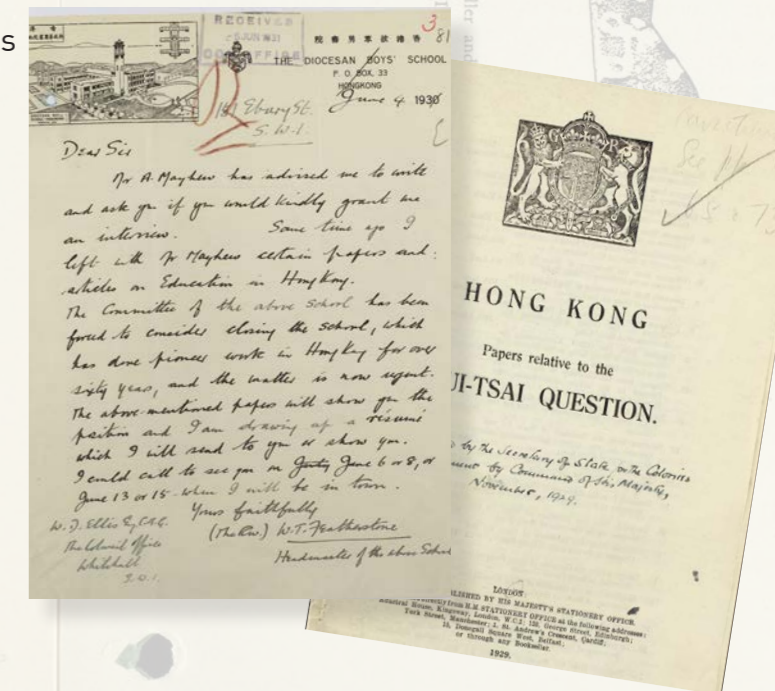 s
3
81
RECEIVED
5 JUN 1931
COL. OFFICE
THE DIOCESAN BOYS' SCHOOL
P. O. BOX, 33
HONGKONG
June 4 1930
Ebury St.
S. W. 1.
Dear Sir
Mr A. Mayhew has advised me to write
and ask you if you would kindly grant me
an interview. Some time ago I
left with Mr Mayhew certain papers and
articles on Education in Hong Kong.
The Committee of the above School has been
forced to consider closing the school, which
has done pioneer work in Hong Kong for over
sixty years, and the matter is now urgent.
The above-mentioned papers will show you the
position and I am drawing up a résumé
which I will send to you or show you.
I could call to see you on June 6 or 8, or
June 13 or 15 when I will be in town.
Yours faithfully
(The Rev.) W.T. Featherstone
Headmaster of the above School
W. D. Ellis Esq C.M.G.
The Colonial Office
Whitehall
S.W.1.
HONG KONG
Papers relative to the
UI-TSAI QUESTION.
by the Secretary of State for the Colonies
by Command of His Majesty,
November, 1929.
LONDON:
PUBLISHED BY HIS MAJESTY'S STATIONERY OFFICE.
directly from H.M. STATIONERY OFFICE at the following addresses:
House, Kingsway, London, W.C.2; 120, George Street, Edinburgh;
York Street, Manchester; 1, St. Andrew's Crescent, Cardiff;
15, Donegall Square West, Belfast;
or through any Bookseller.
1929.